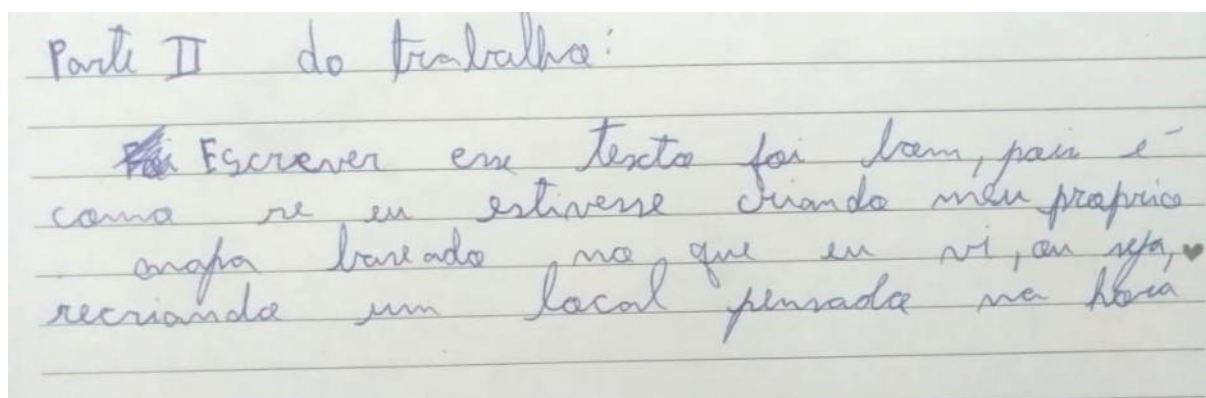 Parte II do trabalho:
Escrever esse texto foi bom, pois é
como se eu estivesse criando meu proprio
mapa baseado no que eu vi, ou seja,
recriando um local pensado na hora